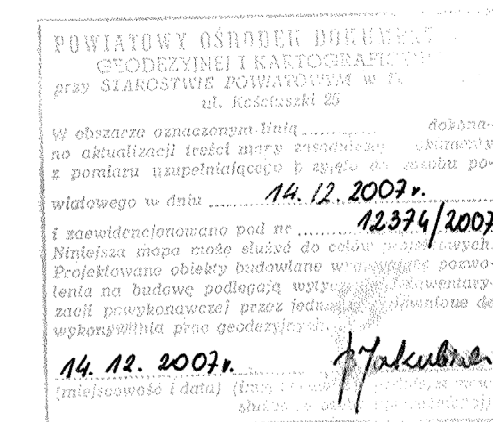 POWIATOWY OŚRODEK
GEODEZYJNEJ I KARTOGRAFICZNEJ
przy STAROSTWIE POWIATOWYM w
ul. Kościuszki 25
W obszarze oznaczonym linią .......... dokona-
no aktualizacji treści mapy zasadniczej
z pomiaru uzupełniającego przyjęto do zasobu po-
wiatowego w dniu 14.12.2007r.
i zaewidencjonowano pod nr 12374/2007
Niniejsza mapa może służyć do celów projektowych.
Projektowane obiekty budowlane wymagające pozwo-
lenia na budowę podlegają inwentary-
zacji powykonawczej przez uprawnione do
wykonywania prac geodezyjnych.
14. 12. 2007r.
(miejscowość i data)